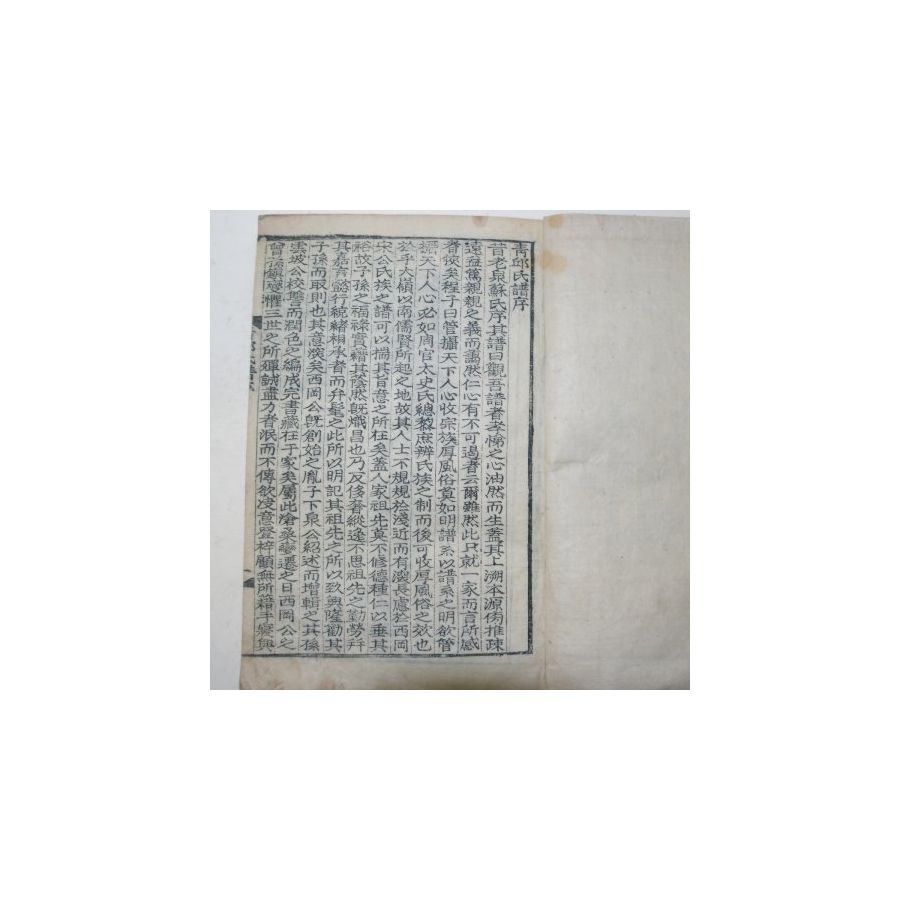 靑邱氏譜序
昔老泉蘇氏序其譜曰觀吾譜者孝悌之心油然而生蓋其上溯本源傍推疎
遠益篤親親之義而藹然仁心有不可遏者云爾雖然此只就一家而言所感
者狹矣程子曰管攝天下人心收宗族厚風俗莫如明譜系以譜系之明欲管
攝天下人心必如周官太史氏總敍庶辨氏族之制而後可收厚風俗之效也
於乎大嶺以南儒賢所起之地故其人士不規規於淺近而有深長慮於西岡
宋公氏族之譜可以揣其旨意之所在矣蓋人家祖先莫不修德種仁以垂其
裕故子孫之福祿實藉其蔭然旣熾昌也乃反侈奢縱逸不思祖先之勤勞幷
其嘉言懿行統緖相承者而弁髦之此所以明記其祖先之所以致興隆勸其
子孫而取則也其意深矣西岡公旣創始之胤子下泉公紹述而增輯之其孫
雲坡公校讐而潤色之編成完書藏在于家矣屬此滄桑變遷之日西岡公之
曾孫鎭 懼三世之所殫誠盡力者泯而不傳欲決意登梓顧無所藉手寢興